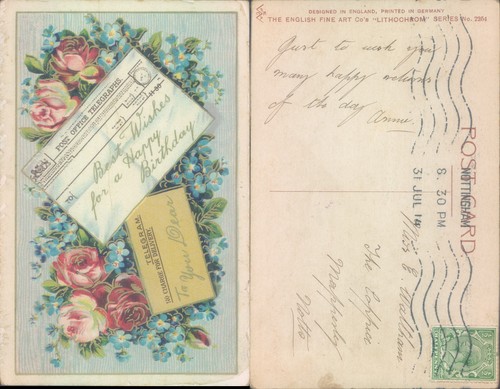 POST OFFICE TELEGRAPHS.
TO
Best Wishes
for a Happy
Birthday
TELEGRAM
NO CHARGE FOR DELIVERY.
To You Dear
DESIGNED IN ENGLAND, PRINTED IN GERMANY
THE ENGLISH FINE ART Co's "LITHOCHROM" SERIES No. 2304
Just to wish you
many happy returns
of the day
Annie.
POST CARD
NOTTINGHAM
8. 30 PM
31 JUL 14
Miss E Wallham
The Coppice
Mapperley
Notts